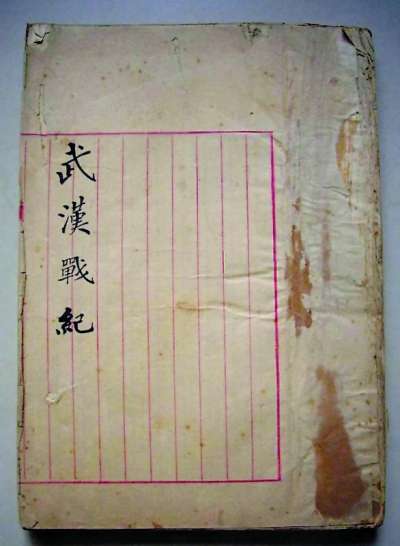 武漢戰紀